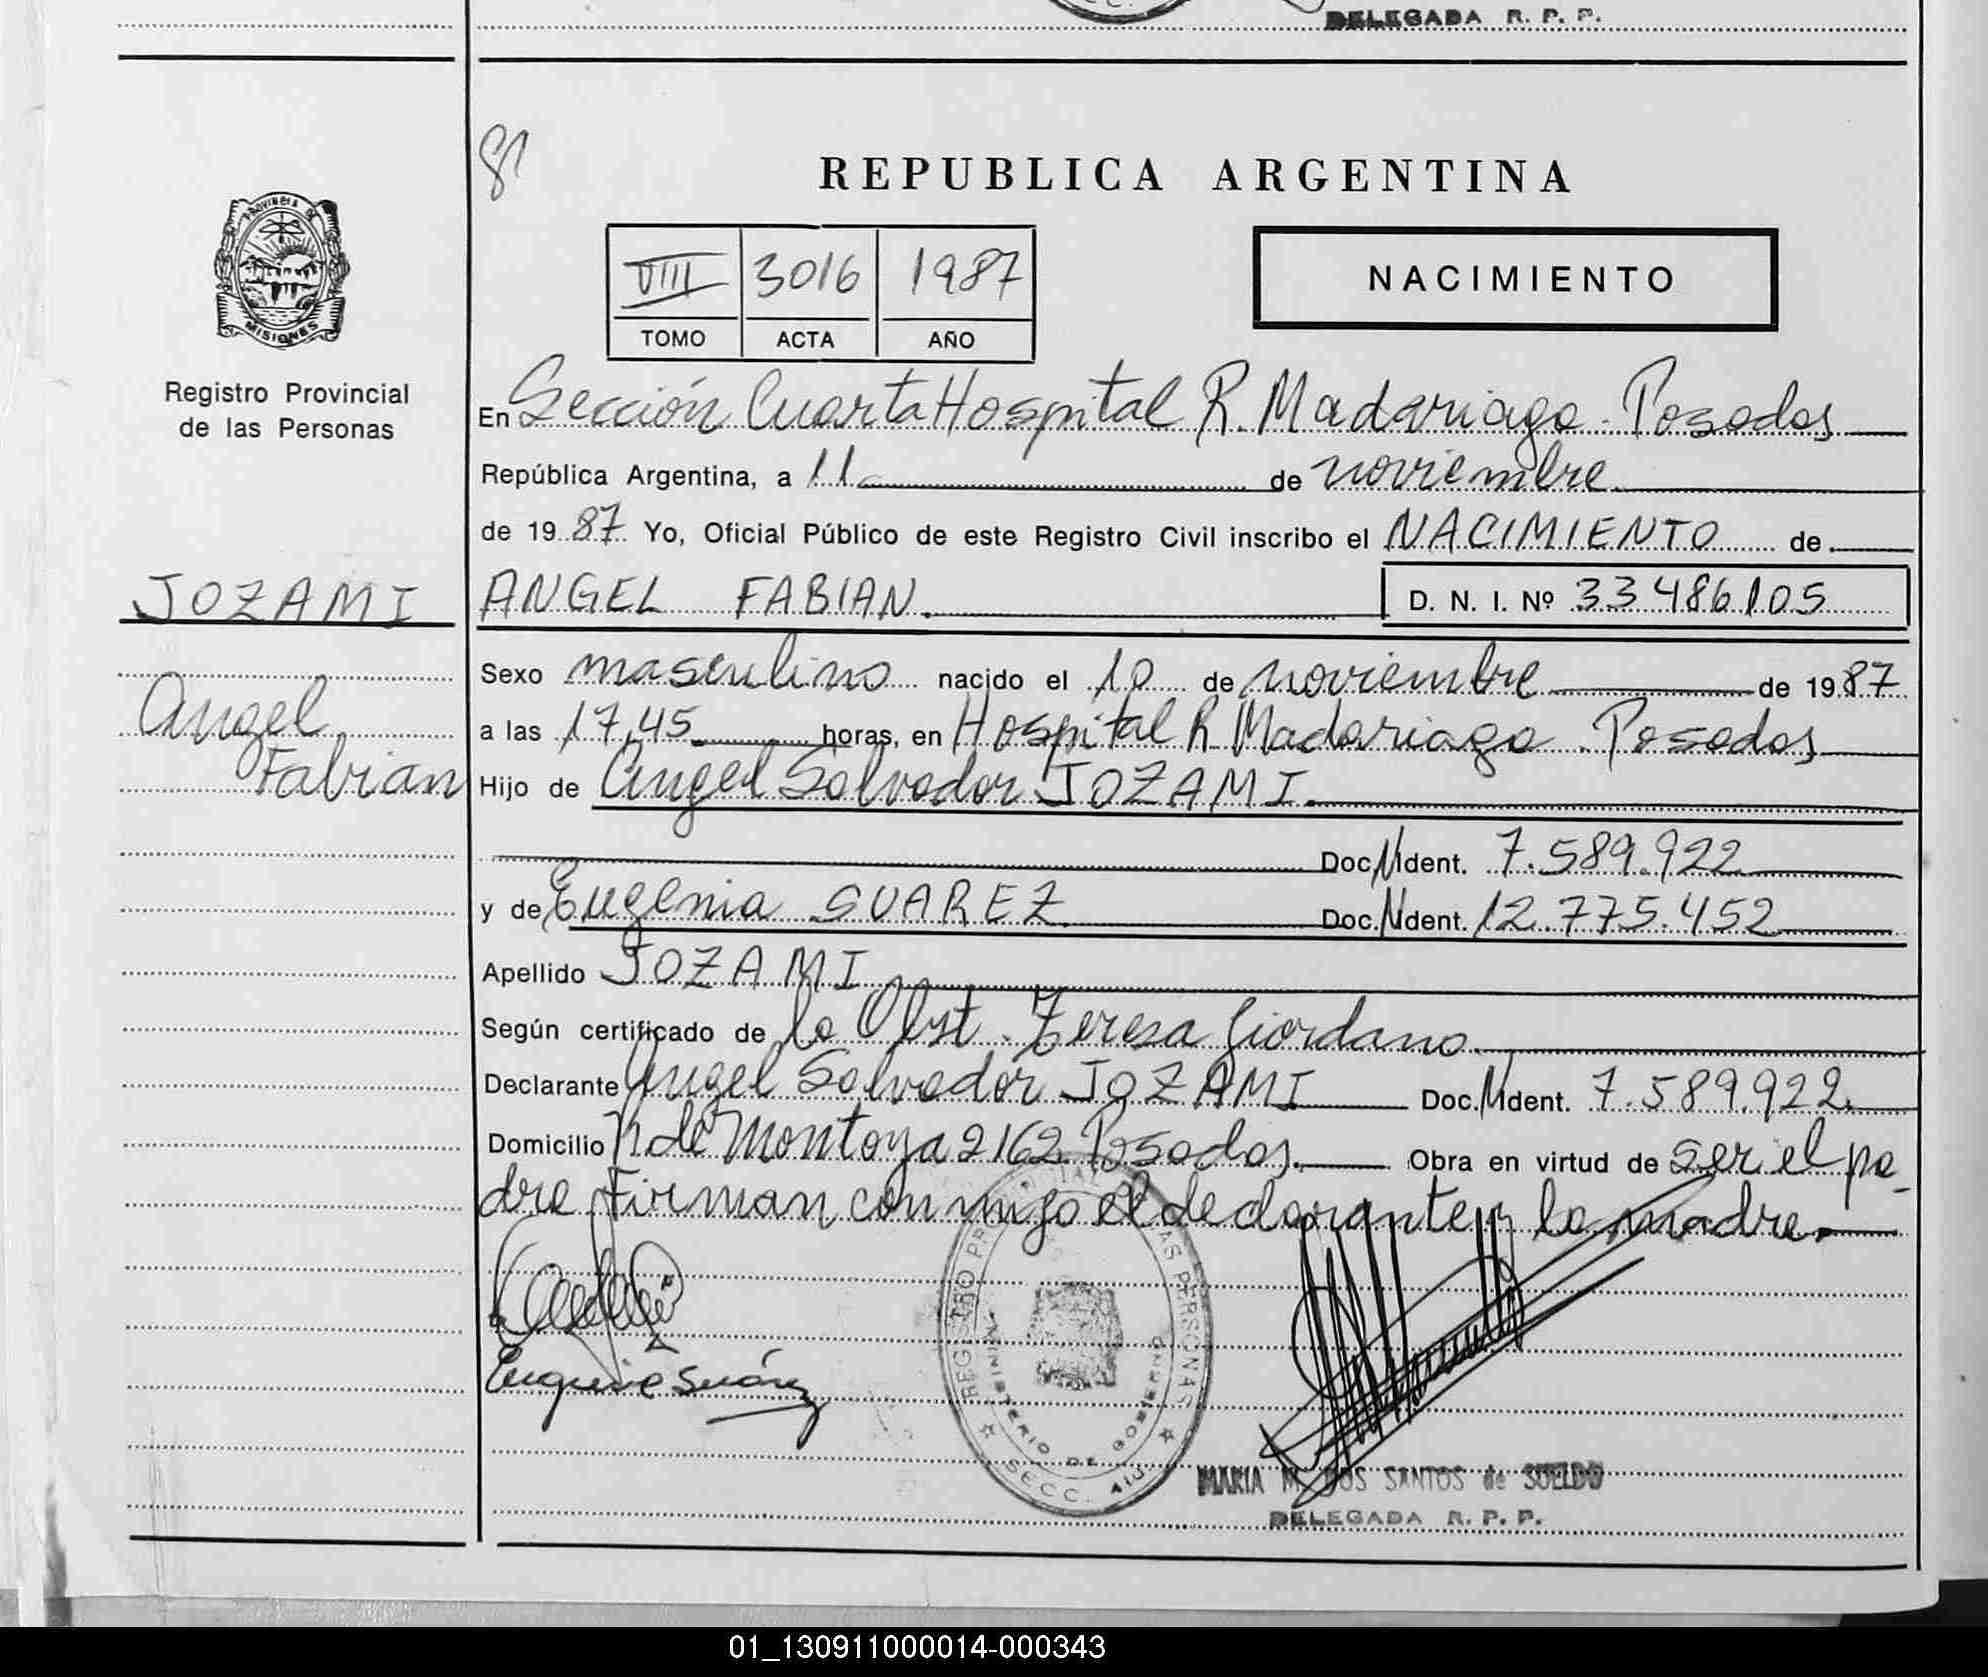 DELEGADA R. P. P.
81
REPUBLICA ARGENTINA
VIII 3016 1987
TOMO ACTA AÑO
NACIMIENTO
PROVINCIA DE
MISIONES
Registro Provincial
de las Personas
En Sección Cuarta Hospital R. Madariaga - Posadas
República Argentina, a 11 de noviembre
de 1987 Yo, Oficial Público de este Registro Civil inscribo el NACIMIENTO de
JOZAMI
ANGEL FABIAN. D. N. I. Nº 33486105
Sexo masculino nacido el 10 de noviembre de 1987
Angel
Fabian
a las 17,45 horas, en Hospital R. Madariaga - Posadas
Hijo de Angel Salvador JOZAMI.
Doc. Ident. 7.589.922
y de Eugenia SUAREZ Doc. Ident. 12.775.452
Apellido JOZAMI
Según certificado de la Obst. Teresa Giordano
Declarante Angel Salvador JOZAMI Doc. Ident. 7.589.922
Domicilio R de Montoya 2162 Posadas. Obra en virtud de ser el pa-
dre Firman conmigo el declarante y la madre.
Eugenia Suárez
REGISTRO PROVINCIAL DE LAS PERSONAS
MINISTERIO DE GOBIERNO
SECC. 4
MARIA M. DOS SANTOS de SUELDO
DELEGADA R. P. P.
01_130911000014-000343